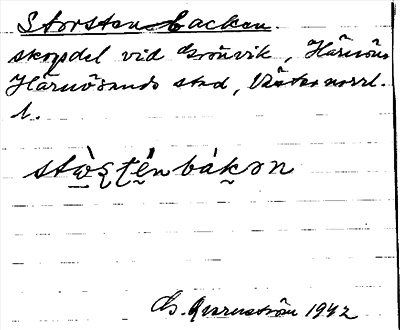 Storstenbacken.
skogsdel vid Grönvik, Härnön
Härnösands stad, Västernorrl.
l.
stò̤ʂʈè̤nbák̬ən
G. Qvarnström 1942